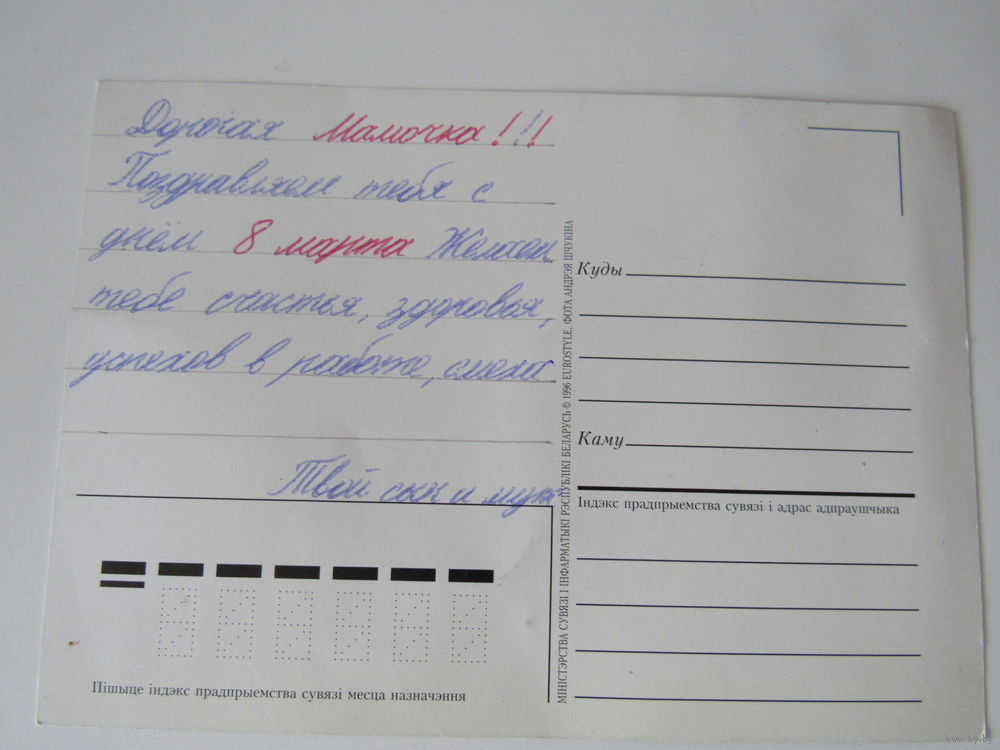 Дорогая Мамочка!!!
Поздравляем тебя с
днём 8 марта Желаем
тебе счастья, здоровья,
успехов в работе, смеха
Твой сын и муж
Пішыце індэкс прадпрыемства сувязі месца назначэння
МІНІСТЭРСТВА СУВЯЗІ І ІНФАРМАТЫКІ РЭСПУБЛІКІ БЕЛАРУСЬ © 1996 EUROSTYLE, ФОТА АНДРЭЯ ШЧУКІНА
Куды
Каму
Індэкс прадпрыемства сувязі і адрас адпраушчыка
www.ay.by